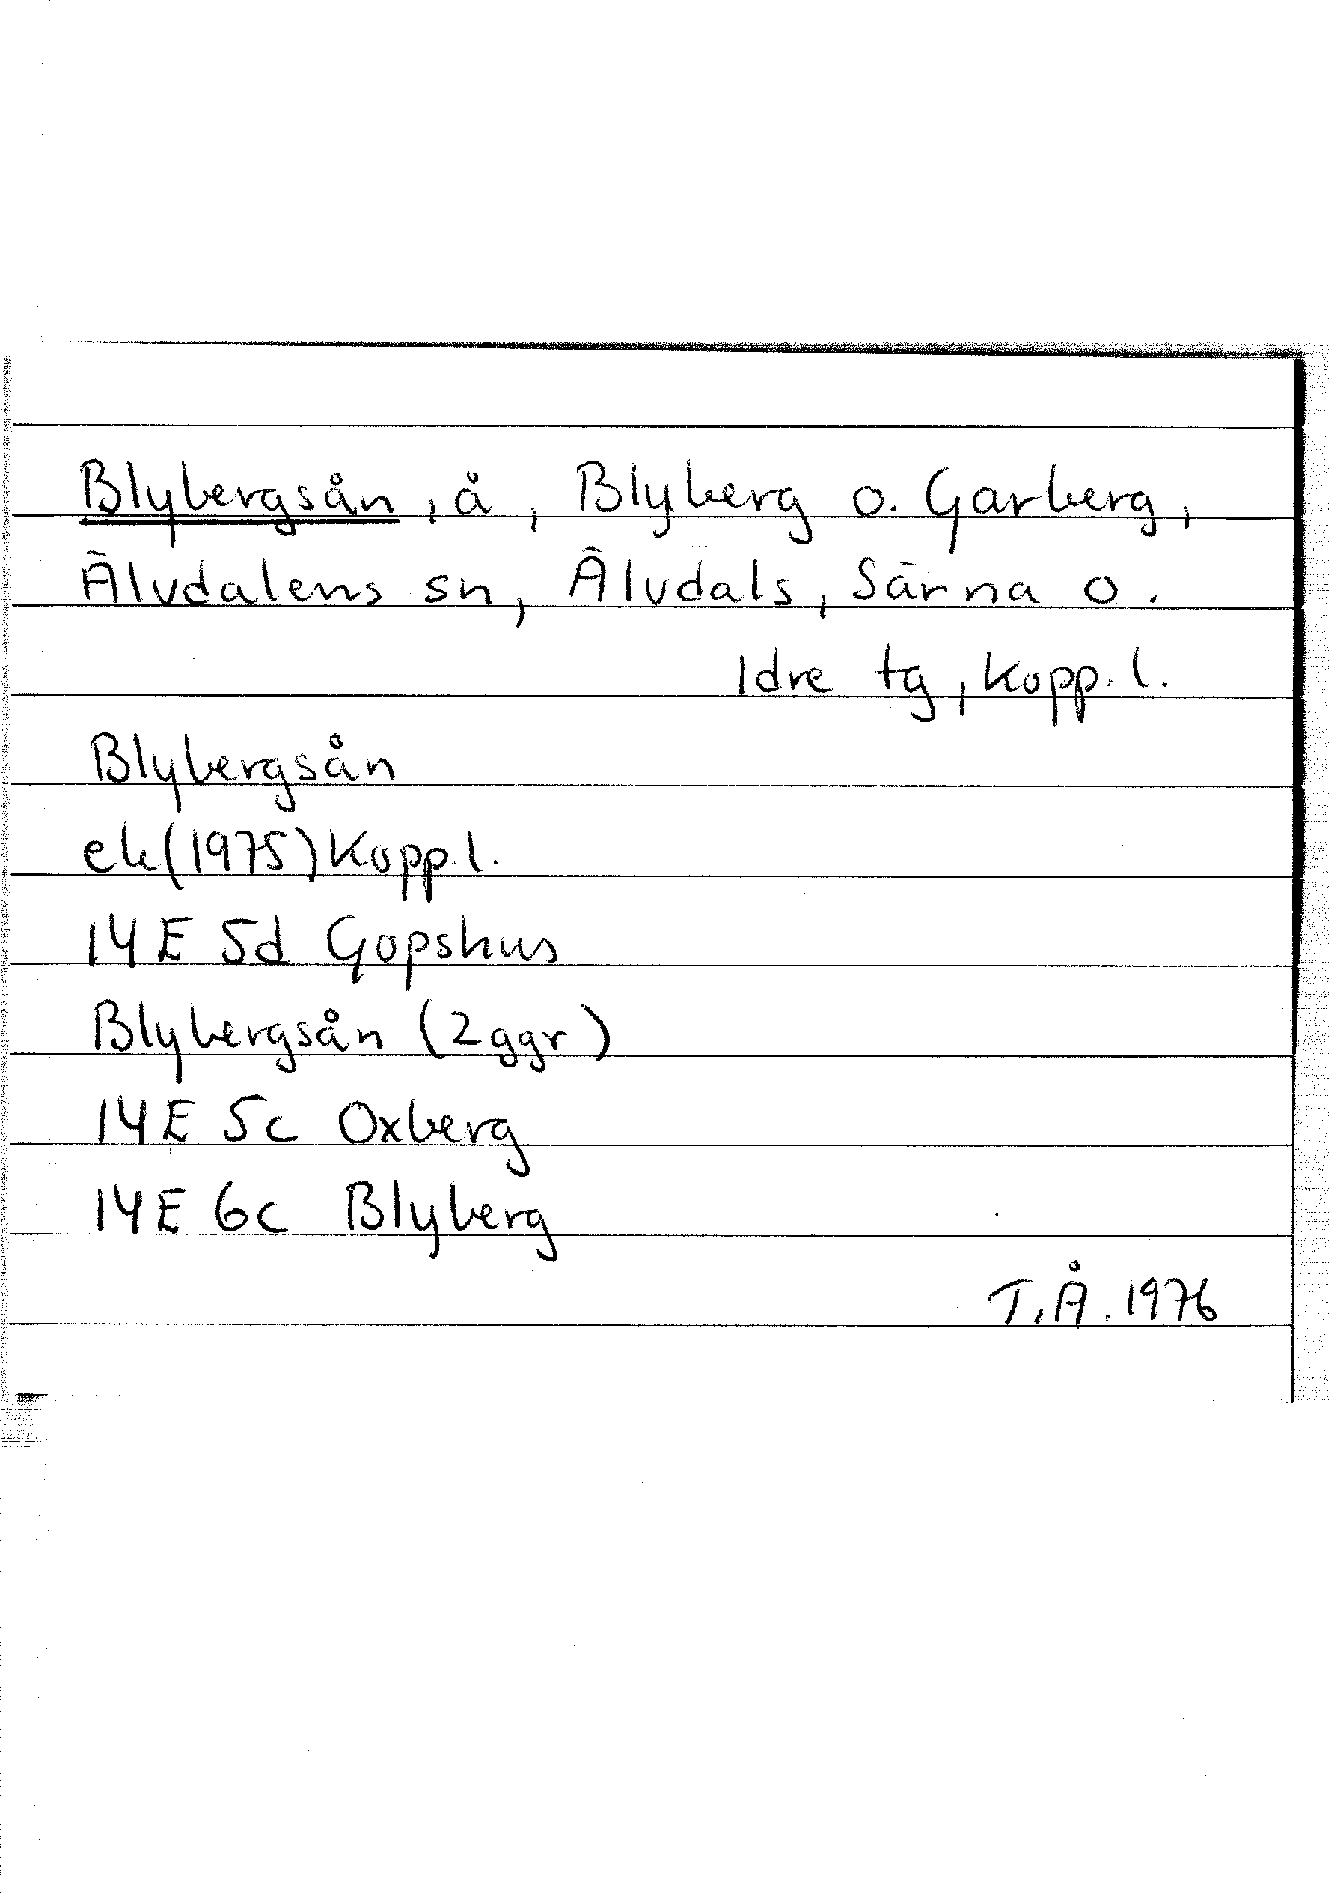 Blybergsån, å, Blyberg o. Garberg,
Älvdalens sn, Älvdals, Särna o.
Idre tg, Kopp. l.
Blybergsån
ek(1975) Kopp. l.
14E 5d Gopshus
Blybergsån (2 ggr)
14E 5c Oxberg
14E 6c Blyberg
T.Å. 1976